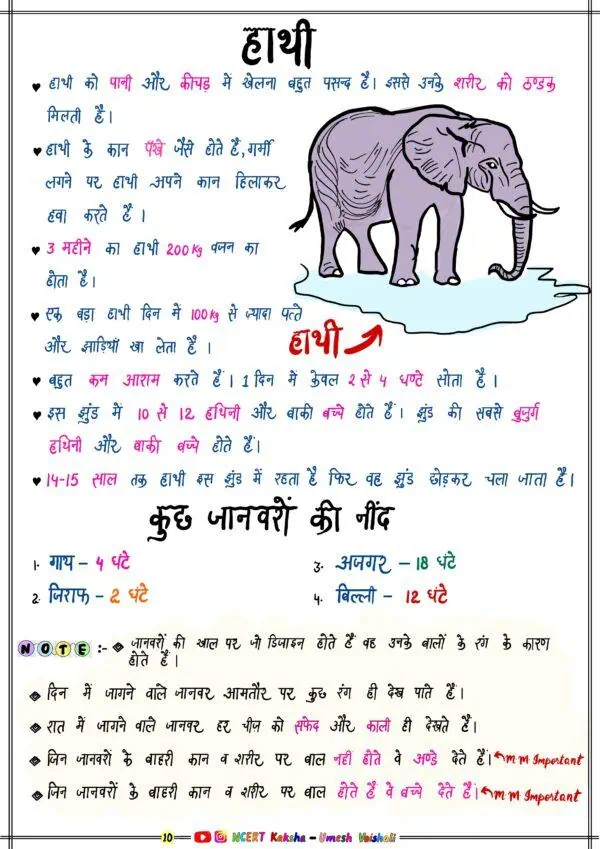 हाथी
♥ हाथी को पानी और कीचड़ में खेलना बहुत पसन्द है। इससे उनके शरीर को ठण्डक
मिलती है।
♥ हाथी के कान पँखे जैसे होते हैं, गर्मी
लगने पर हाथी अपने कान हिलाकर
हवा करते हैं।
♥ 3 महीने का हाथी 200 Kg वजन का
होता है।
♥ एक बड़ा हाथी दिन में 100 Kg से ज्यादा पत्ते
और झाड़ियाँ खा लेता है।
हाथी
♥ बहुत कम आराम करते हैं। 1 दिन में केवल 2 से 4 घण्टे सोता है।
♥ इस झुंड में 10 से 12 हथिनी और बाकी बच्चे होते हैं। झुंड की सबसे बुजुर्ग
हथिनी और बाकी बच्चे होते हैं।
♥ 14-15 साल तक हाथी इस झुंड में रहता है फिर वह झुंड छोड़कर चला जाता है।
कुछ जानवरों की नींद
1. गाय - 4 घंटे
2. जिराफ - 2 घंटे
3. अजगर - 18 घंटे
4. बिल्ली - 12 घंटे
NOTE :- ◆ जानवरों की खाल पर जो डिजाइन होते हैं वह उनके बालों के रंग के कारण
होते हैं।
◆ दिन में जागने वाले जानवर आमतौर पर कुछ रंग ही देख पाते हैं।
◆ रात में जागने वाले जानवर हर चीज को सफेद और काली ही देखते हैं।
◆ जिन जानवरों के बाहरी कान व शरीर पर बाल नहीं होते वे अण्डे देते हैं। M M Important
◆ जिन जानवरों के बाहरी कान व शरीर पर बाल होते हैं वे बच्चे देते हैं। M M Important
10 NCERT Kaksha - Umesh Vaishali